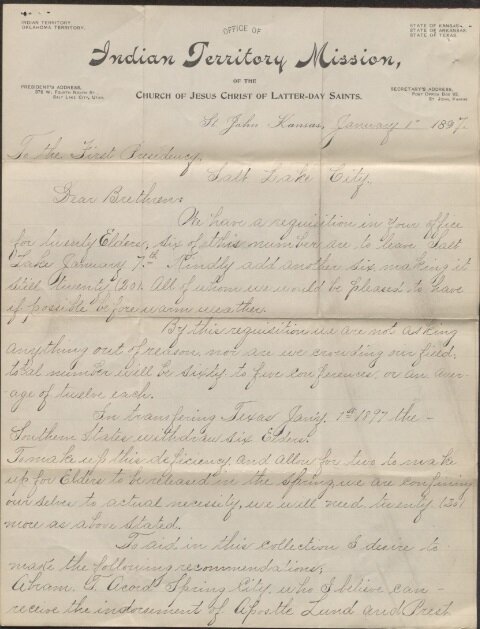 INDIAN TERRITORY.
OKLAHOMA TERRITORY.
OFFICE OF
STATE OF KANSAS.
STATE OF ARKANSAS.
STATE OF TEXAS.
Indian Territory Mission,
OF THE
CHURCH OF JESUS CHRIST OF LATTER-DAY SAINTS.
PRESIDENT'S ADDRESS,
SALT LAKE CITY, UTAH.
SECRETARY'S ADDRESS,
ST. JOHN, KANSAS
St John Kansas, January 1st 1897.
To the First Presidency,
Salt Lake City.
Dear Brethren:
We have a requisition in your office
for twenty Elders, six of this number are to leave Salt
Lake January 7th. Kindly add another six making it
still twenty (20). All of whom we would be pleased to have
if possible before warm weather.
By this requisition we are not asking
anything out of reason, nor are we crowding our field;
total number will be sixty to five conferences, or an aver-
age of twelve each.
In transfering Texas Jany. 1st 1897 the
Southern States withdraw six Elders.
To make up this deficiency and allow for two to make
up for Elders to be released in the spring we are confining
our selves to actual necessity, we will need twenty (20)
more as above stated.
To aid in this collection I desire to
make the following recommendations;
Abram. T. Acord Spring City, who I believe can
receive the indorsement of Apostle Lund and Prest